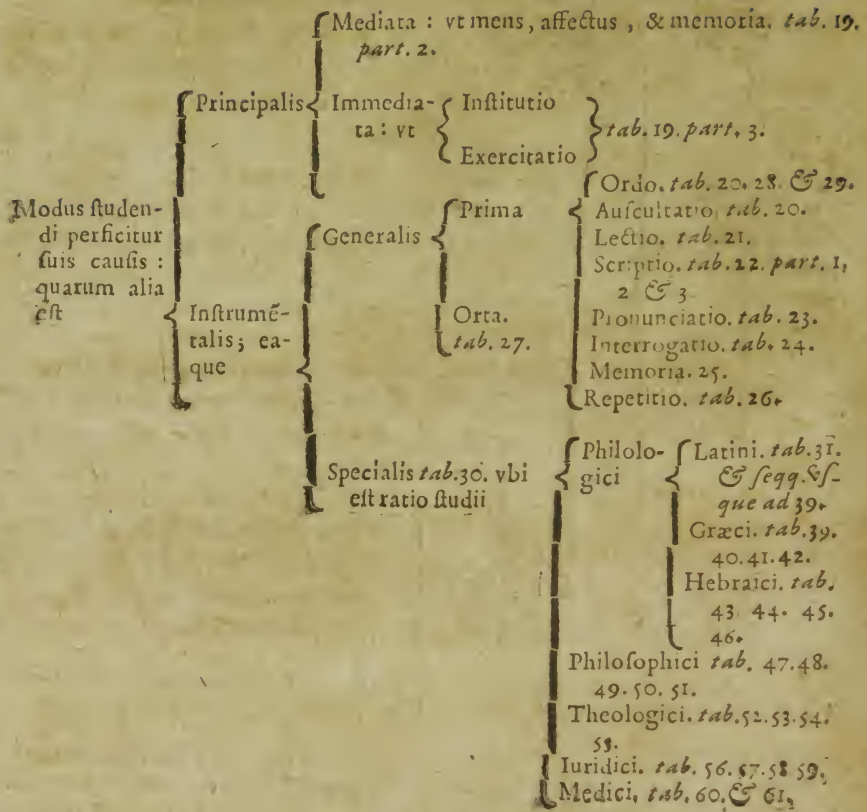 Modus ſtuden-
di perficitur
ſuis cauſis :
quarum alia
eſt
Principalis
Mediata : vt mens, affectus , & memoria. tab. 19.
part. 2.
Immedia-
ta : vt
Inſtitutio
Exercitatio
tab. 19. part. 3.
Inſtrumē-
talis; ea-
que
Generalis
Prima
Ordo. tab. 20. 28. & 29.
Auſcultatio. tab. 20.
Lectio. tab. 21.
Scriptio. tab. 22. part. 1,
2 & 3
Pronunciatio. tab. 23.
Interrogatio. tab. 24.
Memoria. 25.
Repetitio. tab. 26.
Orta.
tab. 27.
Specialis tab. 30. vbi
eſt ratio ſtudii
Philolo-
gici
Latini. tab. 31.
& ſeqq. vſ-
que ad 39.
Græci. tab. 39.
40. 41. 42.
Hebraici. tab.
43 44. 45.
46.
Philoſophici tab. 47. 48.
49. 50. 51.
Theologici. tab. 52. 53. 54.
55.
Iuridici. tab. 56. 57. 58 59.
Medici, tab. 60. & 61.